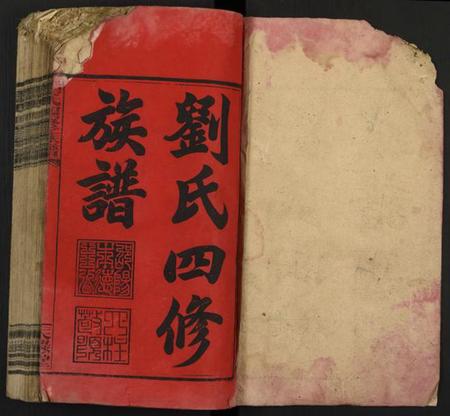 劉氏四修
族譜